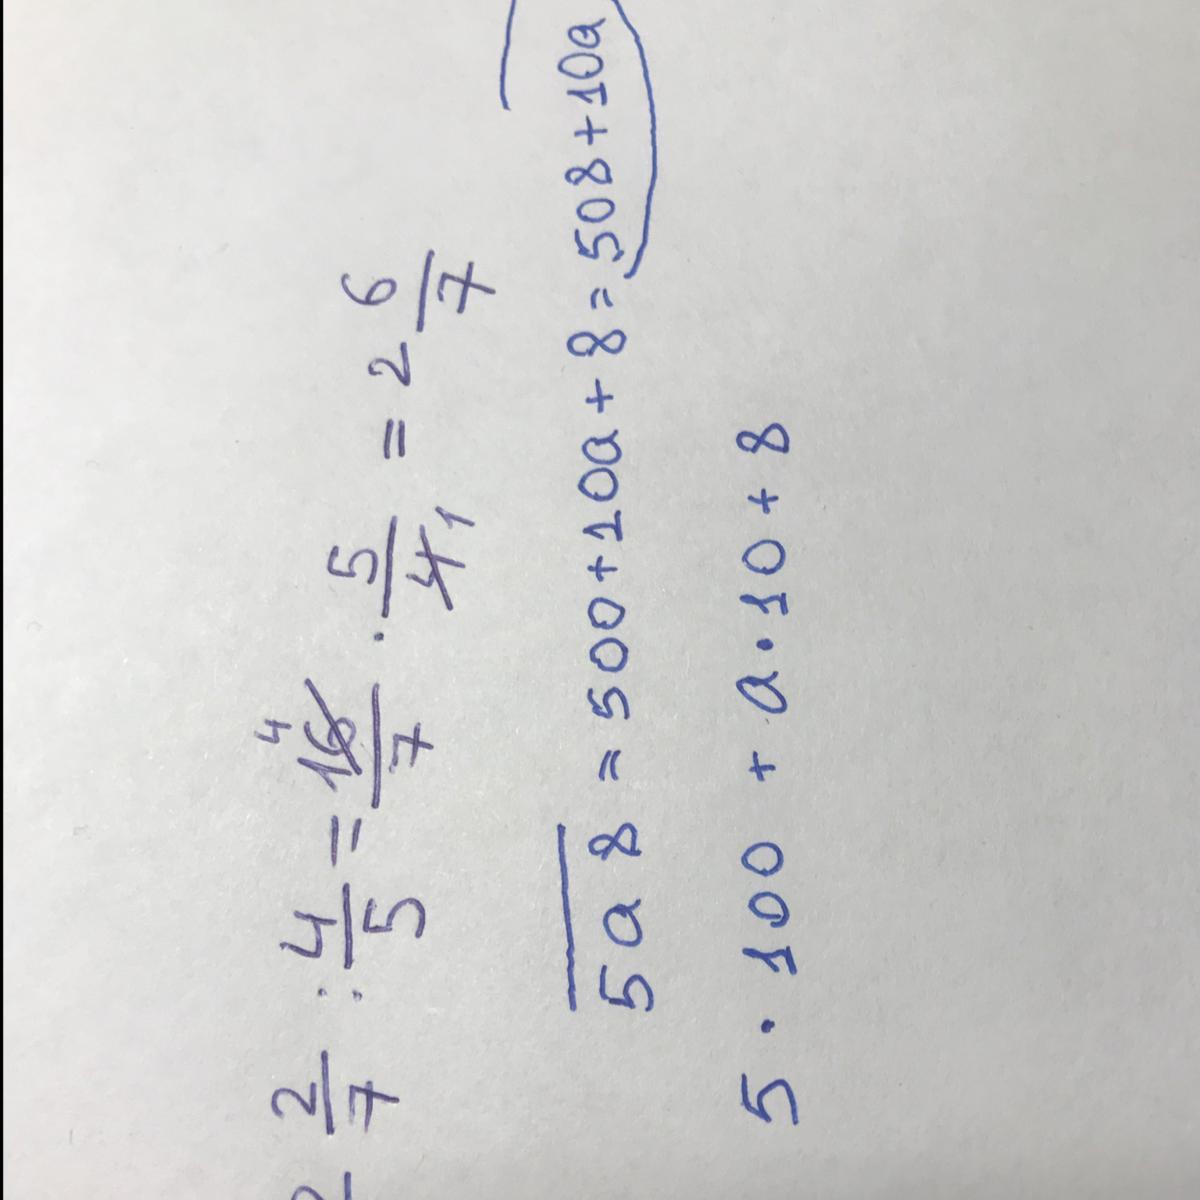 2 2/7 : 4/5 = 16/7 4 · 5/4 1 = 2 6/7
5a8 = 500+10a+8=508+10a
5·100 + a·10+8